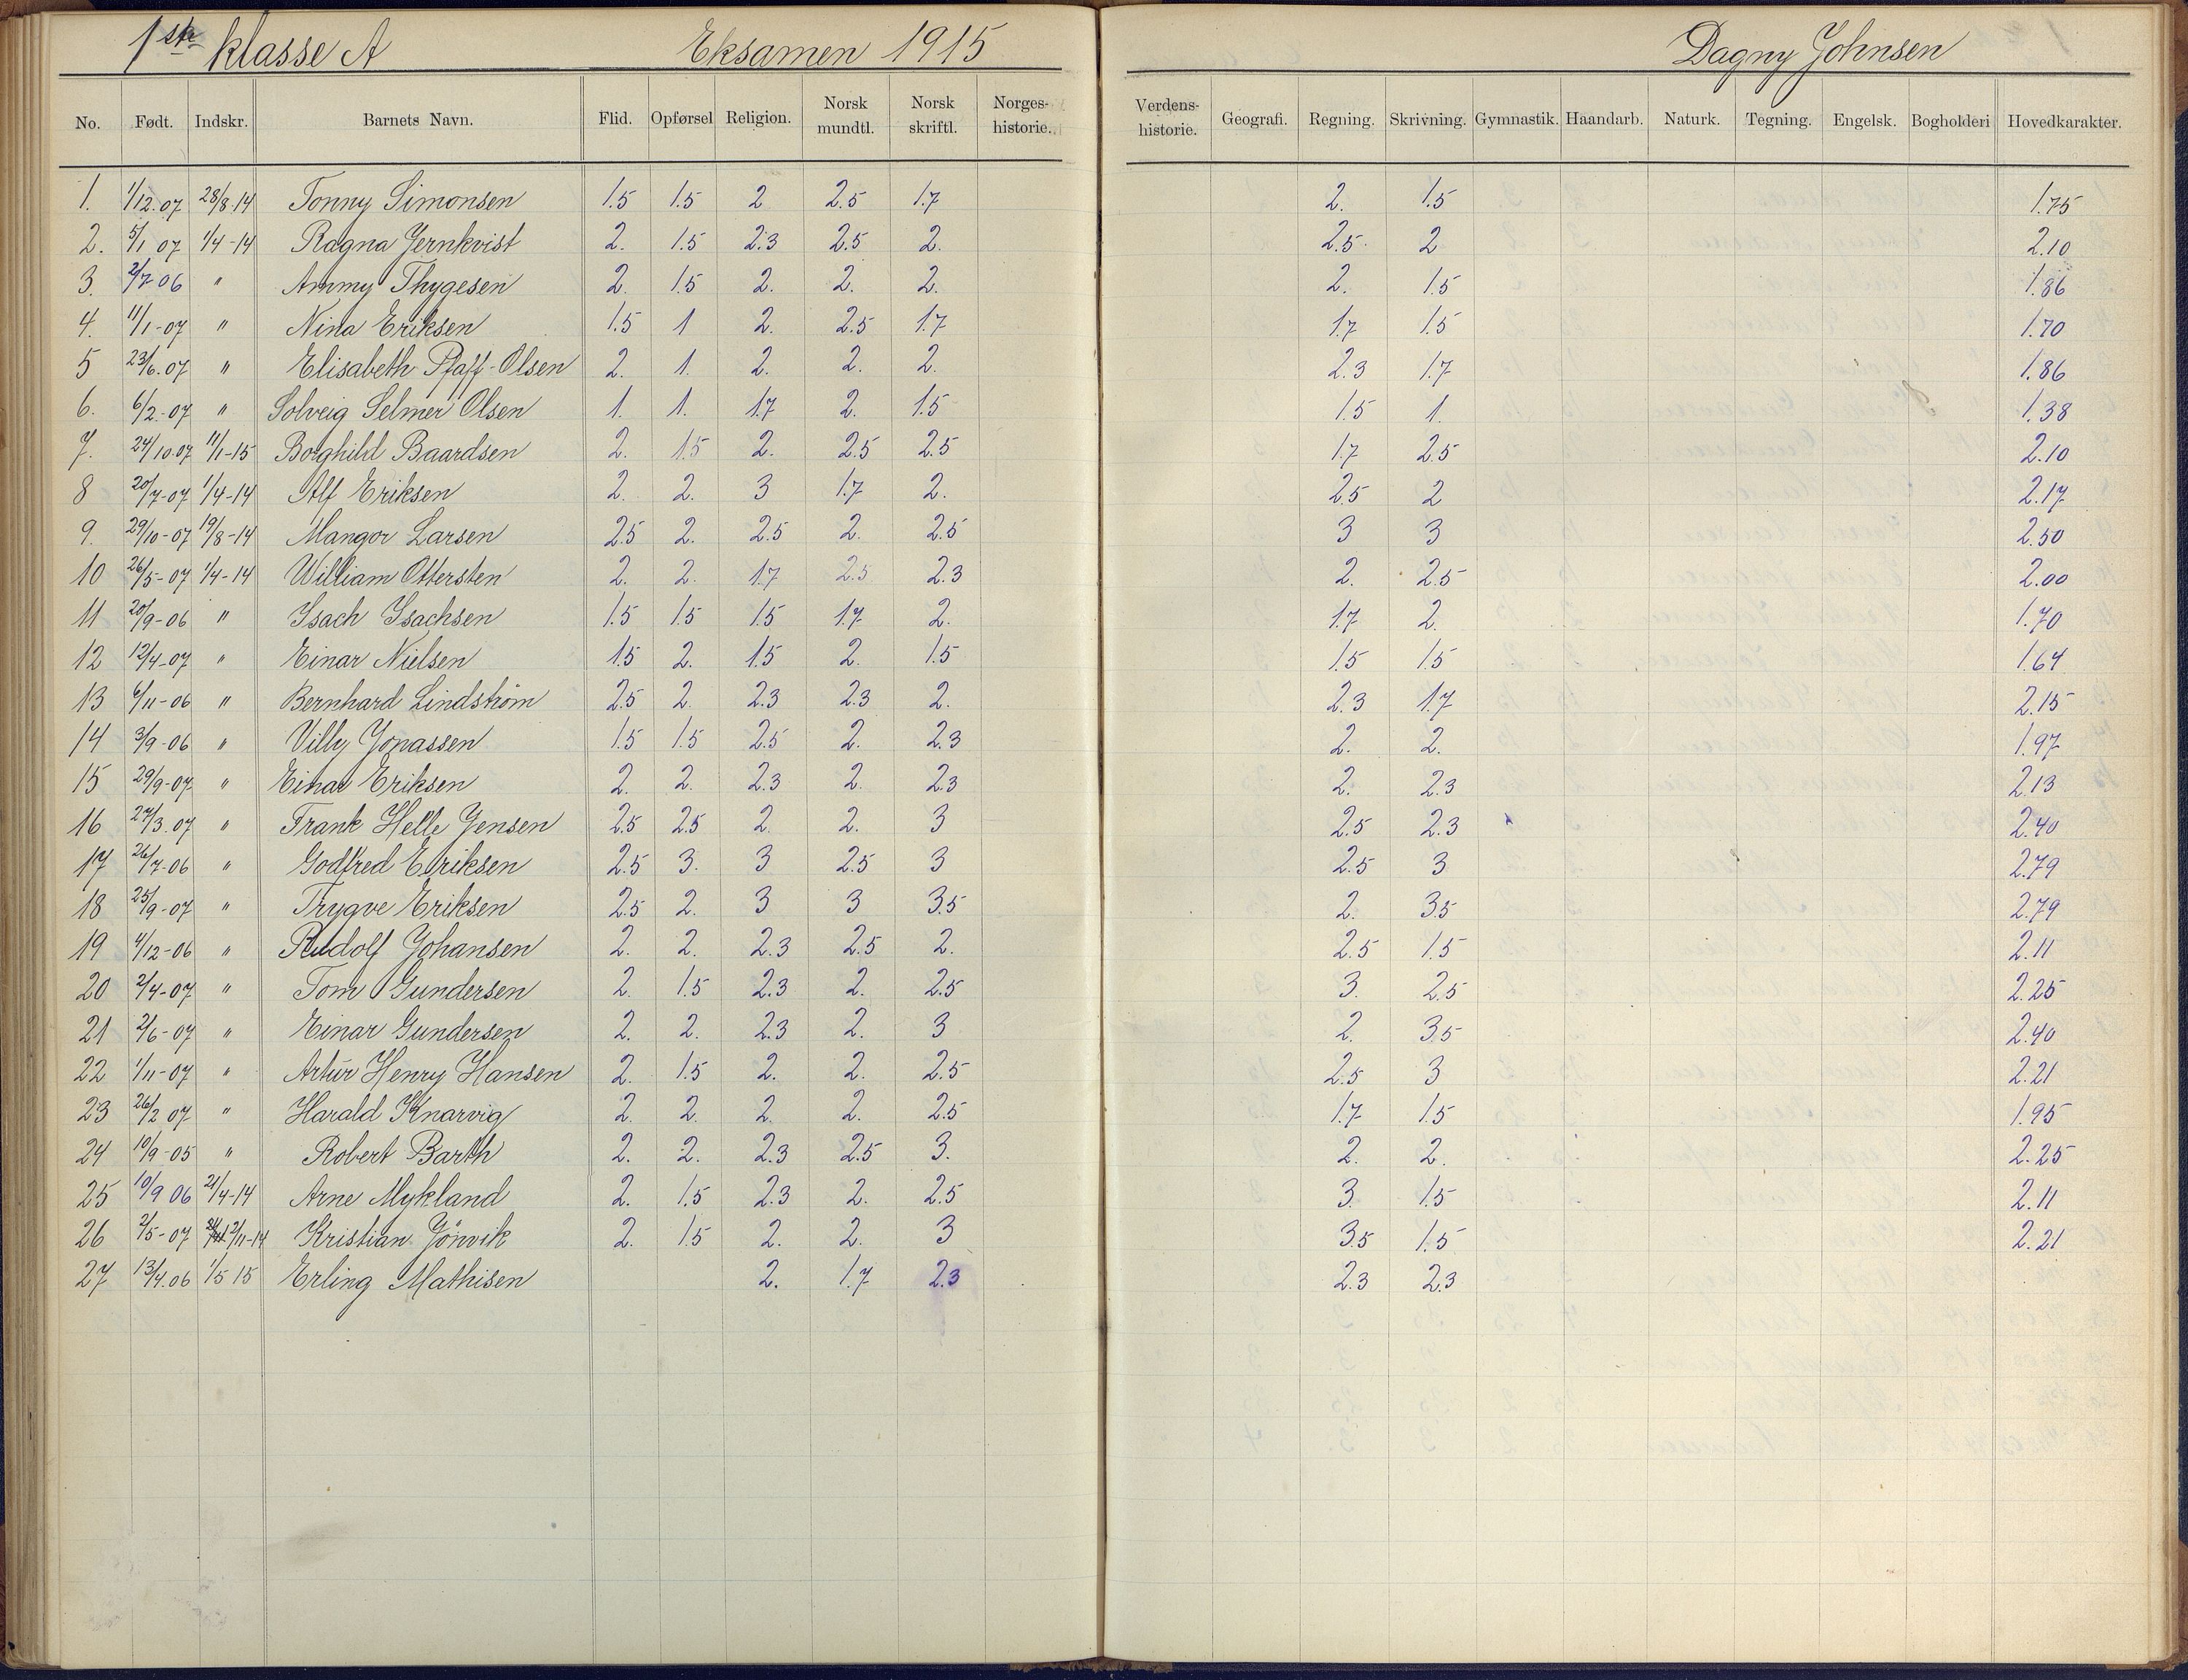 1ste klasse A Eksamen 1915 Dagny Johnsen
No. Født. Indskr. Barnets Navn. Flid. Opførsel Religion. Norsk mundtl. Norsk skriftl. Norges-historie. Verdens-historie. Geografi. Regning. Skrivning. Gymnastik. Haandarb. Naturk. Tegning. Engelsk. Bogholderi Hovedkarakter.
1. 1/12.07 28/8-14 Tonny Simonsen 1.5 1.5 2 2.5 1.7 2. 1.5 1.75
2. 5/1 07 1/4-14 Ragna Jernkvist 2. 1.5 2.3 2.5 2. 2.5 2 2.10
3. 2/7-06 " Ammy Thygesen 2. 1.5 2. 2. 2. 2. 1.5 1.86
4. 11/1-07 " Nina Eriksen 1.5 1 2. 2.5 1.7 1.7 1.5 1.70
5 23/6.07 " Elisabeth Pfaff-Olsen 2. 1. 2. 2. 2. 2.3 1.7 1.86
6. 6/2-07 " Solveig Selmer Olsen 1. 1. 1.7 2. 1.5 1.5 1. 1.38
7. 24/10-07 11/1-15 Borghild Baardsen 2. 1.5 2. 2.5 2.5 1.7 2.5 2.10
8 20/7-07 1/4-14 Alf Eriksen 2. 2. 3 1.7 2. 2.5 2 2.17
9. 29/10-07 19/8-14 Mangor Larsen 2.5 2. 2.5 2. 2.5 3 3 2.50
10 26/5-07 1/4-14 William Ottersten 2. 2. 1.7 2.5 2.3 2. 2.5 2.00
11 20/9-06 " Isach Isachsen 1.5 1.5 1.5 1.7 2. 1.7 2. 1.70
12 12/4-07 " Einar Nielsen 1.5 2. 1.5 2. 1.5 1.5 1.5 1.64
13 6/11-06 " Bernhard Lindström 2.5 2. 2.3 2.3 2. 2.3 1.7 2.15
14 3/9-06 " Villy Jonassen 1.5 1.5 2.5 2. 2.3 2. 2. 1.97
15 29/9-07 " Einar Eriksen 2. 2. 2.3 2. 2.3 2. 2.3 2.13
16 27/3.07 " Frank Helle Jensen 2.5 2.5 2. 2. 3 2.5 2.3 2.40
17 26/7-06 " Godfred Eriksen 2.5 3. 3 2.5 3 2.5 3 2.79
18 25/9-07 " Trygve Eriksen 2.5 2. 3 3 3.5 2. 3.5 2.79
19 4/12-06 " Rudolf Johansen 2. 2. 2.3 2.5 2. 2.5 1.5 2.11
20 2/4-07 " Tom Gundersen 2. 1.5 2.3 2. 2.5 3. 2.5 2.25
21 2/6-07 " Einar Gundersen 2. 2. 2.3 2. 3 2. 3.5 2.40
22 1/11-07 " Artur Henry Hansen 2. 1.5 2. 2. 2.5 2.5 3 2.21
23 26/2 07 " Harald Knarvig 2. 2. 2. 2. 2.5 1.7 1.5 1.95
24 10/9-05 " Robert Barth 2. 2. 2.3 2.5 3. 2. 2. 2.25
25 10/9 06 21/4-14 Arne Mykland 2. 1.5 2.3 2. 2.5 3. 1.5 2.11
26 2/5-07 2/11-14 Kristian Jönvik 2. 1.5 2. 2. 3 3.5 1.5 2.21
27 13/4.06 1/5 15 Erling Mathisen 2. 1.7 2.3 2.3 2.3